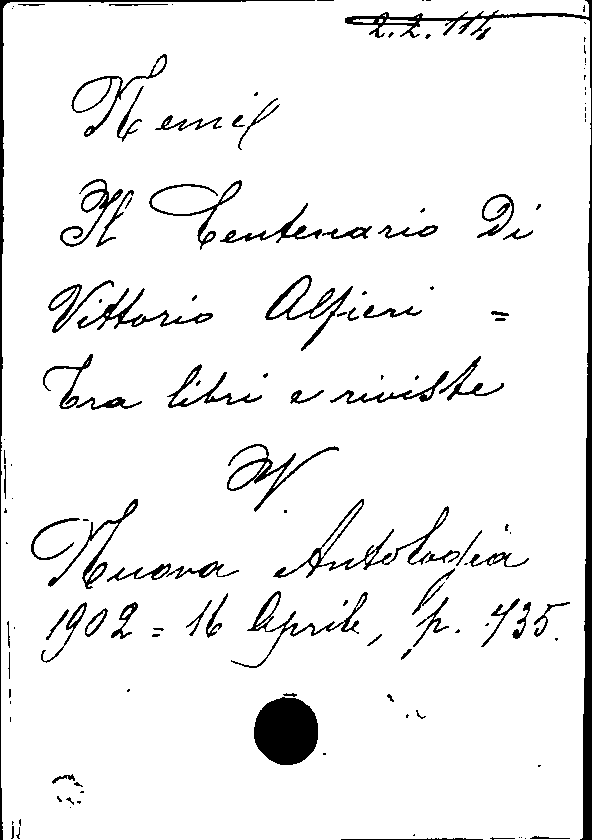 2.2.114
Nemi
Il Centenario Di
Vittorio Alfieri =
Tra libri e riviste
IN
Nuova Antologia
1902 = 16 Aprile, p. 735.